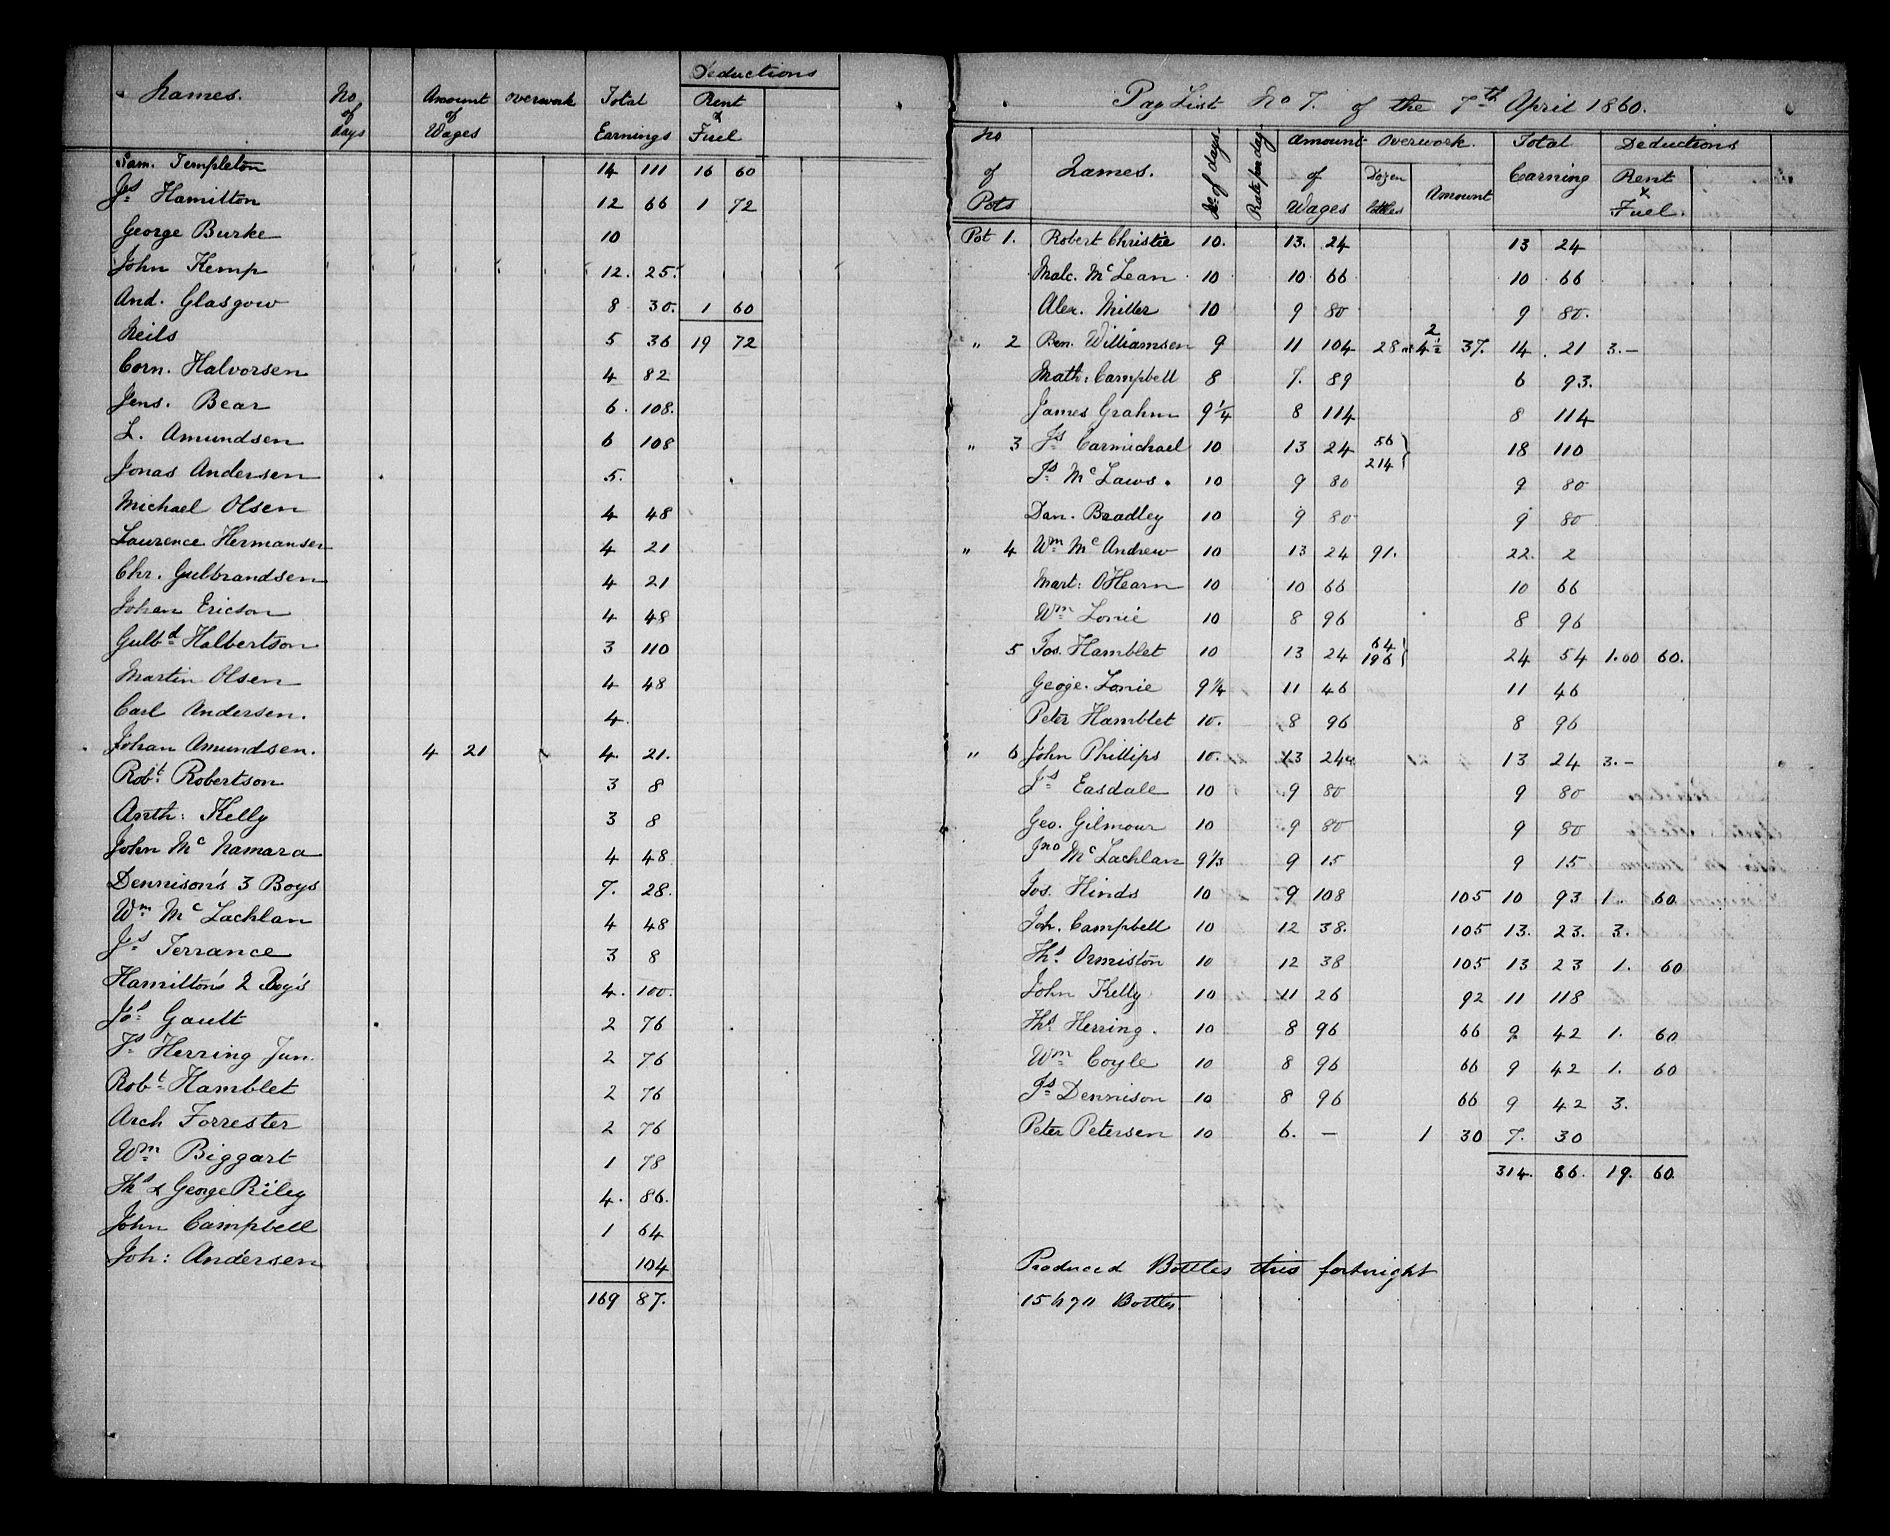 Names. No of days Amount of Wages Overwork Total Earnings Deductions Rent & Fuel
Sam. Templeton 14 111 16 60
Js Hamilton 12 66 1 72
George Burke 10
John Kemp 12. 25.
And. Glasgow 8 30. 1 60
Neils 5 36 19 72
Corn. Halvorsen 4 82
Jens. Bear 6. 108.
L. Amundsen 6 108
Jonas Andersen 5.
Michael Olsen 4 48
Laurence Hermansen 4 21
Chr. Gulbrandsen 4 21
Johan Ericson 4 48
Gulbd Halbertson 3 110
Martin Olsen 4 48
Carl Andersen. 4.
Johan Amundsen. 4 21 4. 21.
Robt Robertson 3 8
Anth: Kelly 3 8
John Mc Namara 4 48
Dennison's 3 Boys 7. 28.
Wm Mc Lachlan 4 48
Js Terrance 3 8
Hamilton's 2 Boy's 4. 100.
Jos Gault 2 76
Js Herring Jun. 2 76
Robt Hamblet 2 76
Arch Forrester 2 76
Wm Biggart 1 78
Ths & George Riley 4. 86.
John Campbell 1 64
Joh: Andersen 104
169 87.
Pay List No 7. of the 7th April 1860.
No of Pots Names. No of days. Rate per day. Amount of Wages Overwork. Dozen bottles Amount Total Earning Deductions Rent & Fuel.
Pot 1. Robert Christie 10. 13. 24 13 24
Malc. Mc Lean 10 10 66 10 66
Alex. Miller 10 9 80 9 80.
" 2 Ben. Williamsen 9 11 104 28 2 4½ 37. 14. 21 3.—
Math: Campbell 8 7. 89 6 93.
James Grahm 9¼ 8 114 8 114
" 3 Js Carmichael 10 13 24 56 214 } 18 110
Js Mc Laws. 10 9 80 9 80
Dan. Bradley 10 9 80 9 80
" 4 Wm Mc Andrew 10 13 24 91. 22. 2
Mart: OHearn 10 10 66 10 66
Wm Lonie 10 8 96 8 96
5 Jos. Hamblet 10 13 24 64 196 } 24 54 1.00 60.
Geoje. Lonie 9¼ 11 46 11 46
Peter Hamblet 10. 8 96 8 96
" 6 John Phillips 10. 13 24 13 24 3.—
Js Easdale 10 9 80 9 80
Geo. Gilmour 10 9 80 9 80
Jno Mc Lachlan 9⅓ 9 15 9 15
Jos. Hinds 10 9 108 105 10 93 1. 60
Joh. Campbell 10 12 38. 105 13. 23. 3.
Ths Ormiston 10 12 38 105 13 23 1. 60
John Kelly 10 11 26 92 11 118
Ths Herring. 10 8 96 66 9 42 1. 60
Wm Coyle 10 8 96 66 9 42 1. 60
Js Dennison 10 8 96 66 9 42 3.
Peter Petersen 10 6. — 1 30 7. 30
314. 86. 19. 60.
Produced Bottles this fortnight
Bottles.